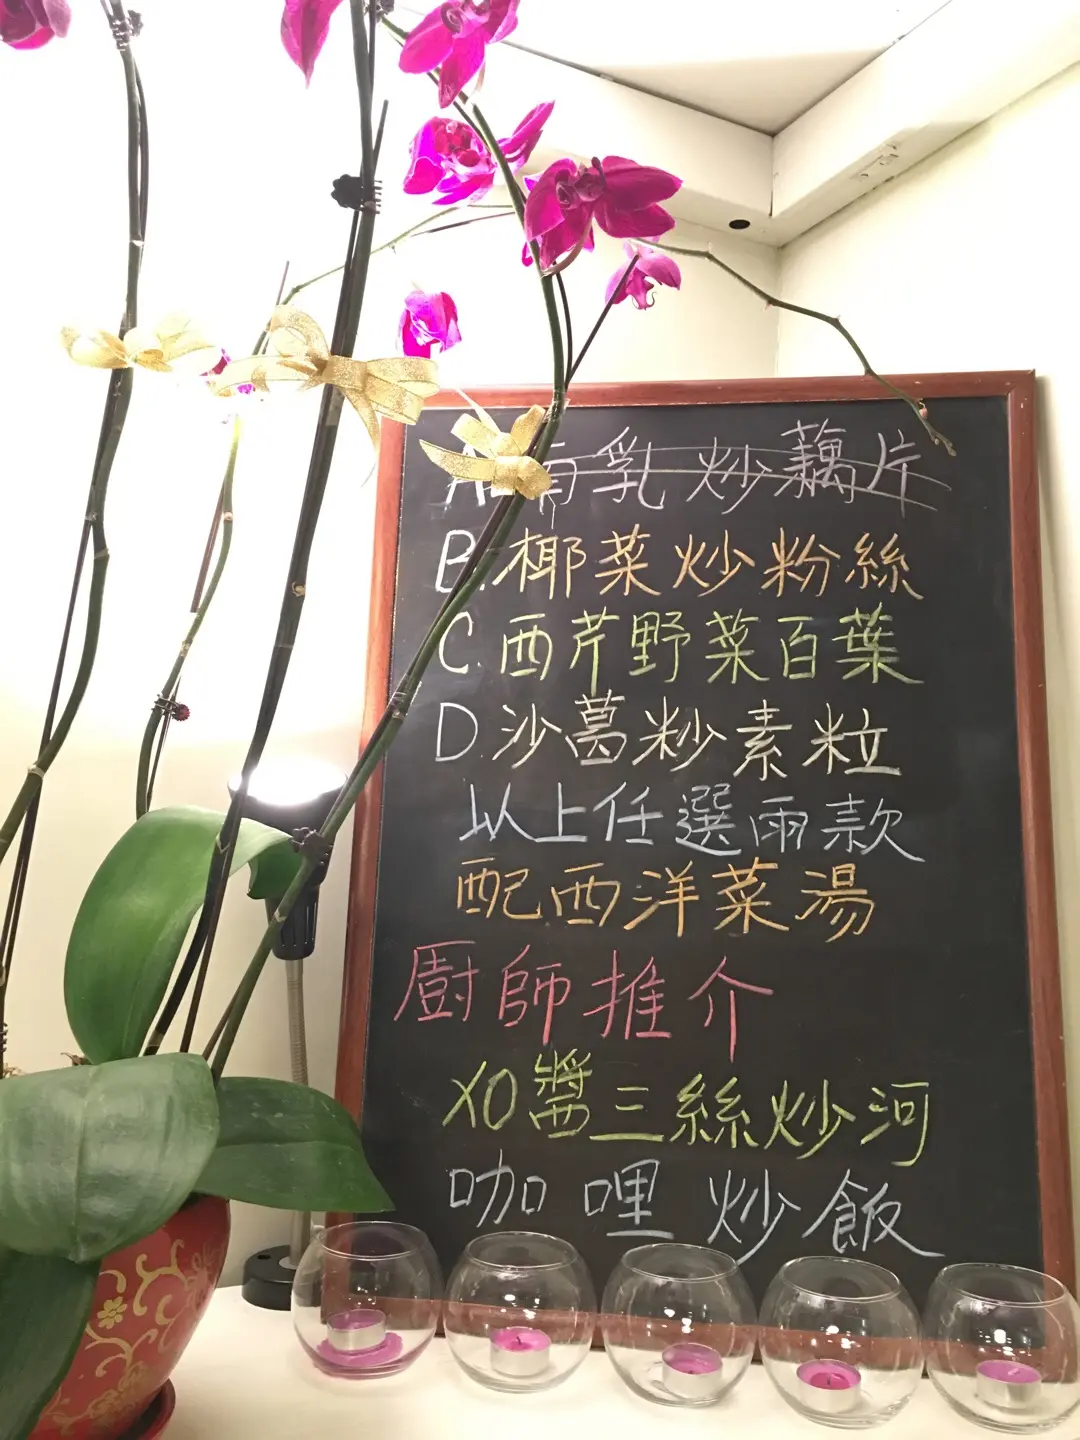 A.南乳炒藕片
B.椰菜炒粉絲
C.西芹野菜百葉
D.沙葛炒素粒
以上任選兩款
配西洋菜湯
廚師推介
XO醬三絲炒河
咖哩炒飯